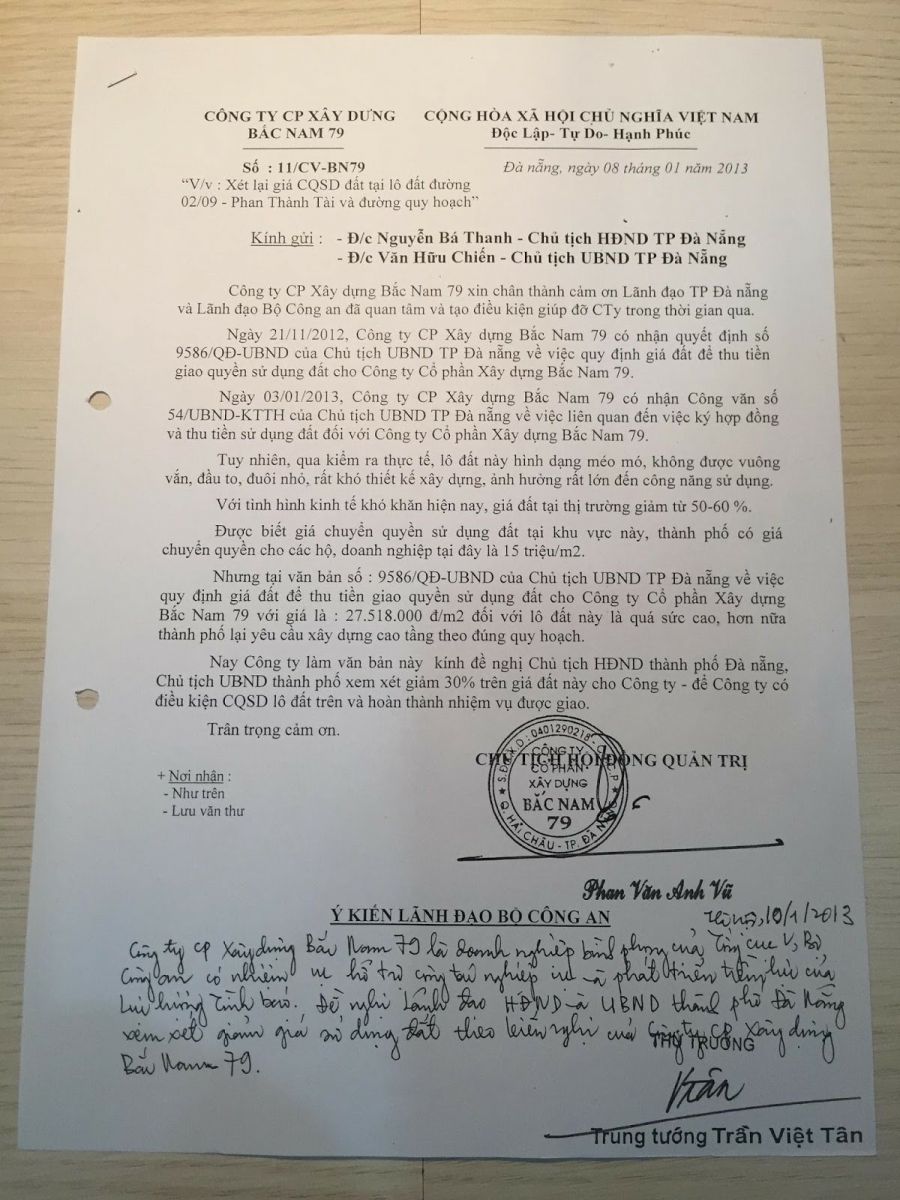 CÔNG TY CP XÂY DỰNG
BẮC NAM 79
CỘNG HÒA XÃ HỘI CHỦ NGHĨA VIỆT NAM
Độc Lập- Tự Do- Hạnh Phúc
Số : 11/CV-BN79
Đà nẵng, ngày 08 tháng 01 năm 2013
“V/v : Xét lại giá CQSD đất tại lô đất đường
02/09 - Phan Thành Tài và đường quy hoạch”
Kính gửi : - Đ/c Nguyễn Bá Thanh - Chủ tịch HĐND TP Đà Nẵng
- Đ/c Văn Hữu Chiến - Chủ tịch UBND TP Đà Nẵng
Công ty CP Xây dựng Bắc Nam 79 xin chân thành cảm ơn Lãnh đạo TP Đà nẵng
và Lãnh đạo Bộ Công an đã quan tâm và tạo điều kiện giúp đỡ CTy trong thời gian qua.
Ngày 21/11/2012, Công ty CP Xây dựng Bắc Nam 79 có nhận quyết định số
9586/QĐ-UBND của Chủ tịch UBND TP Đà nẵng về việc quy định giá đất để thu tiền
giao quyền sử dụng đất cho Công ty Cổ phần Xây dựng Bắc Nam 79.
Ngày 03/01/2013, Công ty CP Xây dựng Bắc Nam 79 có nhận Công văn số
54/UBND-KTTH của Chủ tịch UBND TP Đà nẵng về việc liên quan đến việc ký hợp đồng
và thu tiền sử dụng đất đối với Công ty Cổ phần Xây dựng Bắc Nam 79.
Tuy nhiên, qua kiểm ra thực tế, lô đất này hình dạng méo mó, không được vuông
vắn, đầu to, đuôi nhỏ, rất khó thiết kế xây dựng, ảnh hưởng rất lớn đến công năng sử dụng.
Với tình hình kinh tế khó khăn hiện nay, giá đất tại thị trường giảm từ 50-60 %.
Được biết giá chuyển quyền sử dụng đất tại khu vực này, thành phố có giá
chuyển quyền cho các hộ, doanh nghiệp tại đây là 15 triệu/m2.
Nhưng tại văn bản số : 9586/QĐ-UBND của Chủ tịch UBND TP Đà nẵng về việc
quy định giá đất để thu tiền giao quyền sử dụng đất cho Công ty Cổ phần Xây dựng
Bắc Nam 79 với giá là : 27.518.000 đ/m2 đối với lô đất này là quá sức cao, hơn nữa
thành phố lại yêu cầu xây dựng cao tầng theo đúng quy hoạch.
Nay Công ty làm văn bản này kính đề nghị Chủ tịch HĐND thành phố Đà nẵng,
Chủ tịch UBND thành phố xem xét giảm 30% trên giá đất này cho Công ty - để Công ty có
điều kiện CQSD lô đất trên và hoàn thành nhiệm vụ được giao.
Trân trọng cảm ơn.
CHỦ TỊCH HỘI ĐỒNG QUẢN TRỊ
CÔNG TY
CỔ PHẦN
XÂY DỰNG
BẮC NAM
79
Q. HẢI CHÂU - TP. ĐÀ NẴNG
+ Nơi nhận :
- Như trên
- Lưu văn thư
Phan Văn Anh Vũ
Ý KIẾN LÃNH ĐẠO BỘ CÔNG AN
Hà Nội, 10/1/2013
Công ty CP Xây dựng Bắc Nam 79 là doanh nghiệp bình phong của Tổng cục V, Bộ
Công an có nhiệm vụ hỗ trợ công tác nghiệp vụ và phát triển tiềm lực của
Lực lượng Tình báo. Đề nghị Lãnh đạo HĐND và UBND thành phố Đà Nẵng
xem xét giảm giá sử dụng đất theo kiến nghị của Công ty CP Xây dựng
Bắc Nam 79.
THỨ TRƯỞNG
Trung tướng Trần Việt Tân